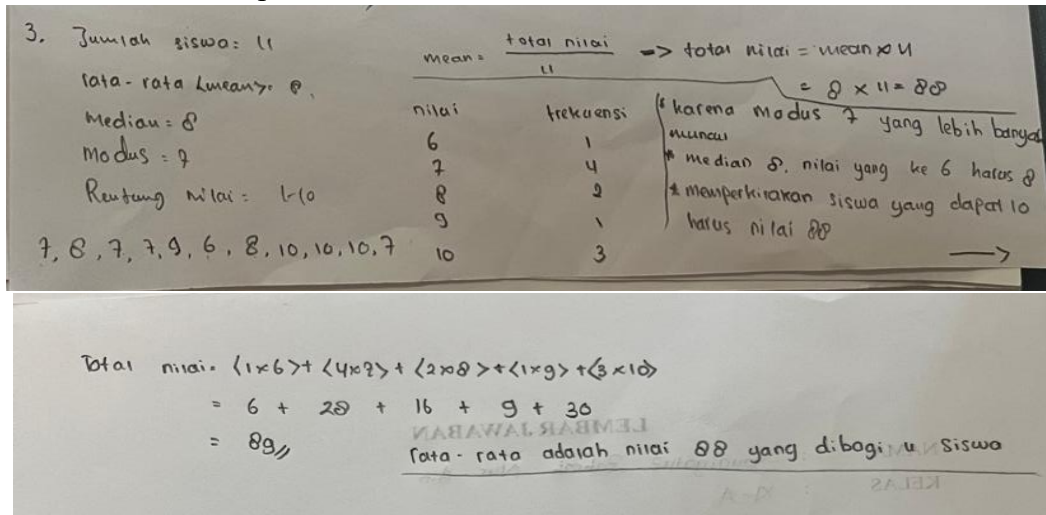 3. Jumlah siswa: 11
rata-rata <mean>: 8.
Median = 8
Modus = 7
Rentang nilai = 1-10
7, 8, 7, 7, 9, 6, 8, 10, 10, 10, 7
mean = total nilai / 11 => total nilai = mean x 11
= 8 x 11 = 88
nilai frekuensi
6 1
7 4
8 2
9 1
10 3
* karena modus 7 yang lebih banyak
muncul
* median 8, nilai yang ke 6 harus 8
* memperkirakan siswa yang dapat 10
harus nilai 88
→
Total nilai = <1x6> + <4x7> + <2x8> + <1x9> + <3x10>
= 6 + 28 + 16 + 9 + 30
= 89//
rata-rata adalah nilai 88 yang dibagi 11 siswa
LEMBAR JAWABAN
KELAS